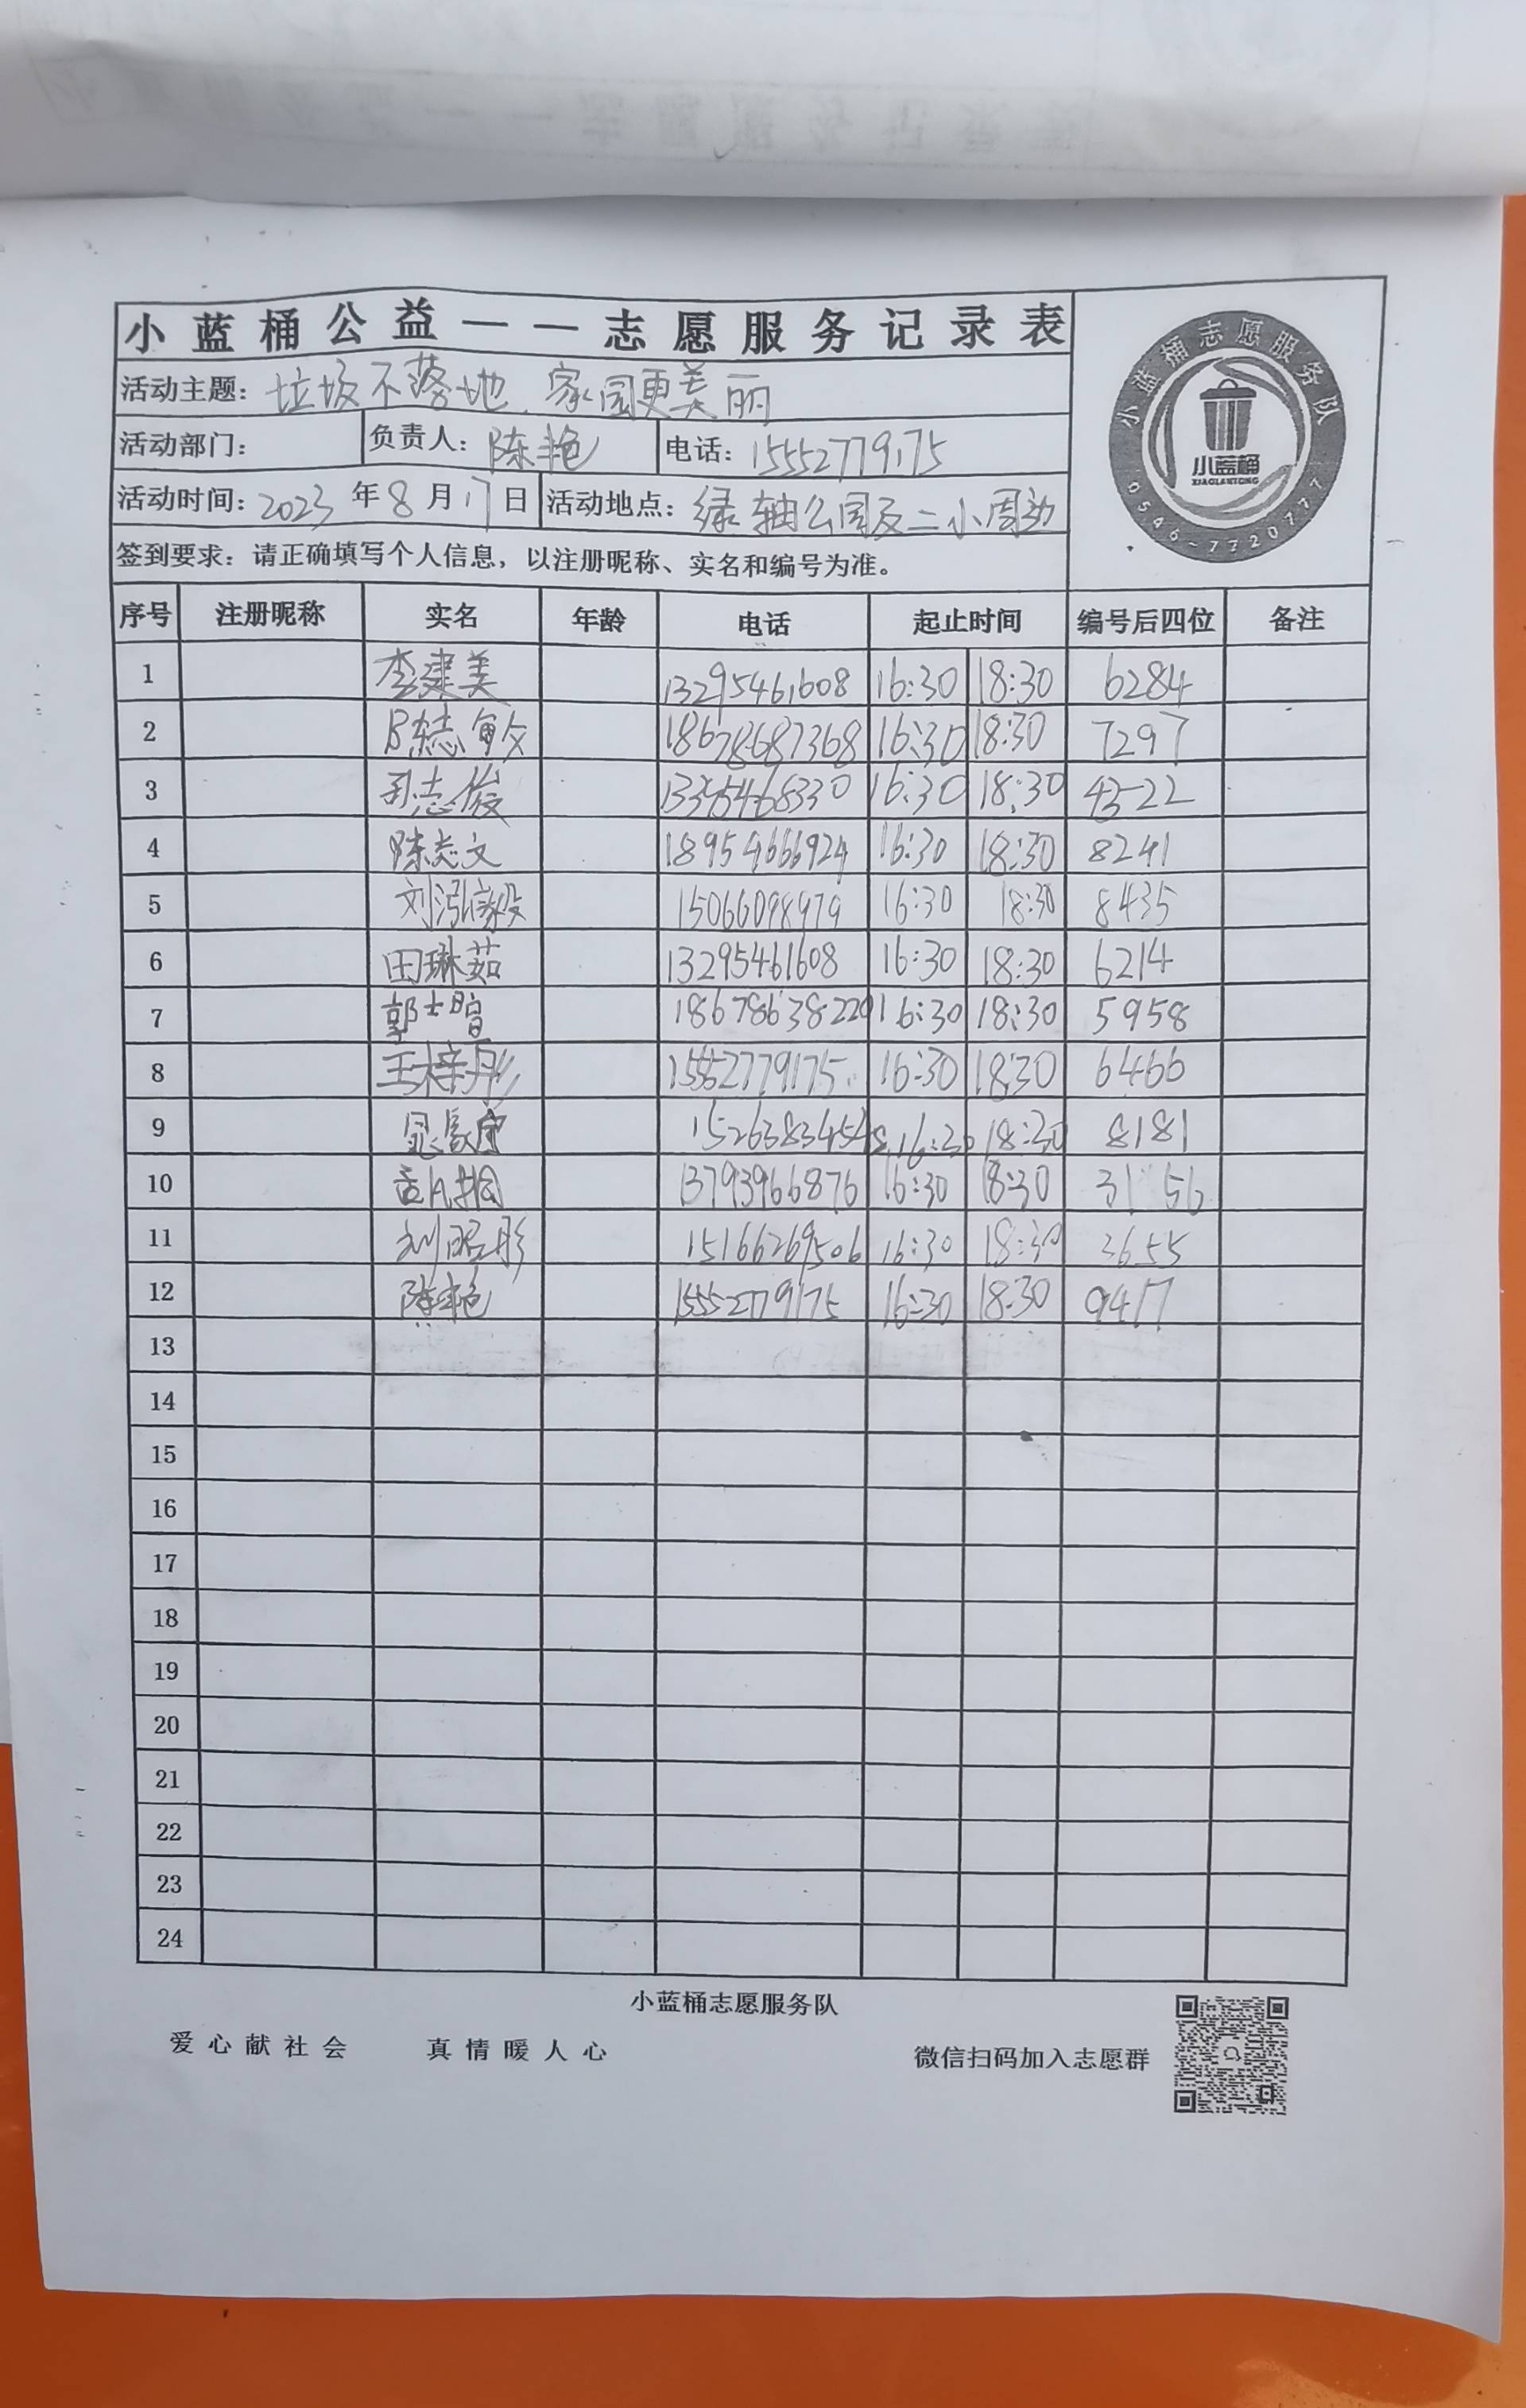 小蓝桶公益——志愿服务记录表
活动主题：垃圾不落地，家园更美丽
活动部门： 负责人：陈艳 电话：15552779175
活动时间：2023年8月17日 活动地点：绿轴公园及二小周边
签到要求：请正确填写个人信息，以注册昵称、实名和编号为准。
小蓝桶志愿服务队
小蓝桶
XIAOLANTONG
0546-7720777
序号 注册昵称 实名 年龄 电话 起止时间 编号后四位 备注
1 李建美 13295461608 16:30 18:30 6284
2 陈志敏 18678687368 16:30 18:30 7297
3 孙志俊 16:30 18:30 4522
4 陈志文 18954666924 16:30 18:30 8241
5 刘泓毅 15066098979 16:30 18:30 8435
6 田琳茹 13295461608 16:30 18:30 6214
7 郭士暄 18678638220 16:30 18:30 5958
8 王梓彤 15552779175 16:30 18:30 6466
9 16:30 18:30 8181
10 13793966876 16:30 18:30 3156
11 刘昭彤 15166269506 16:30 18:30 3655
12 陈艳 15552779175 16:30 18:30 9417
13
14
15
16
17
18
19
20
21
22
23
24
小蓝桶志愿服务队
爱心献社会 真情暖人心 微信扫码加入志愿群